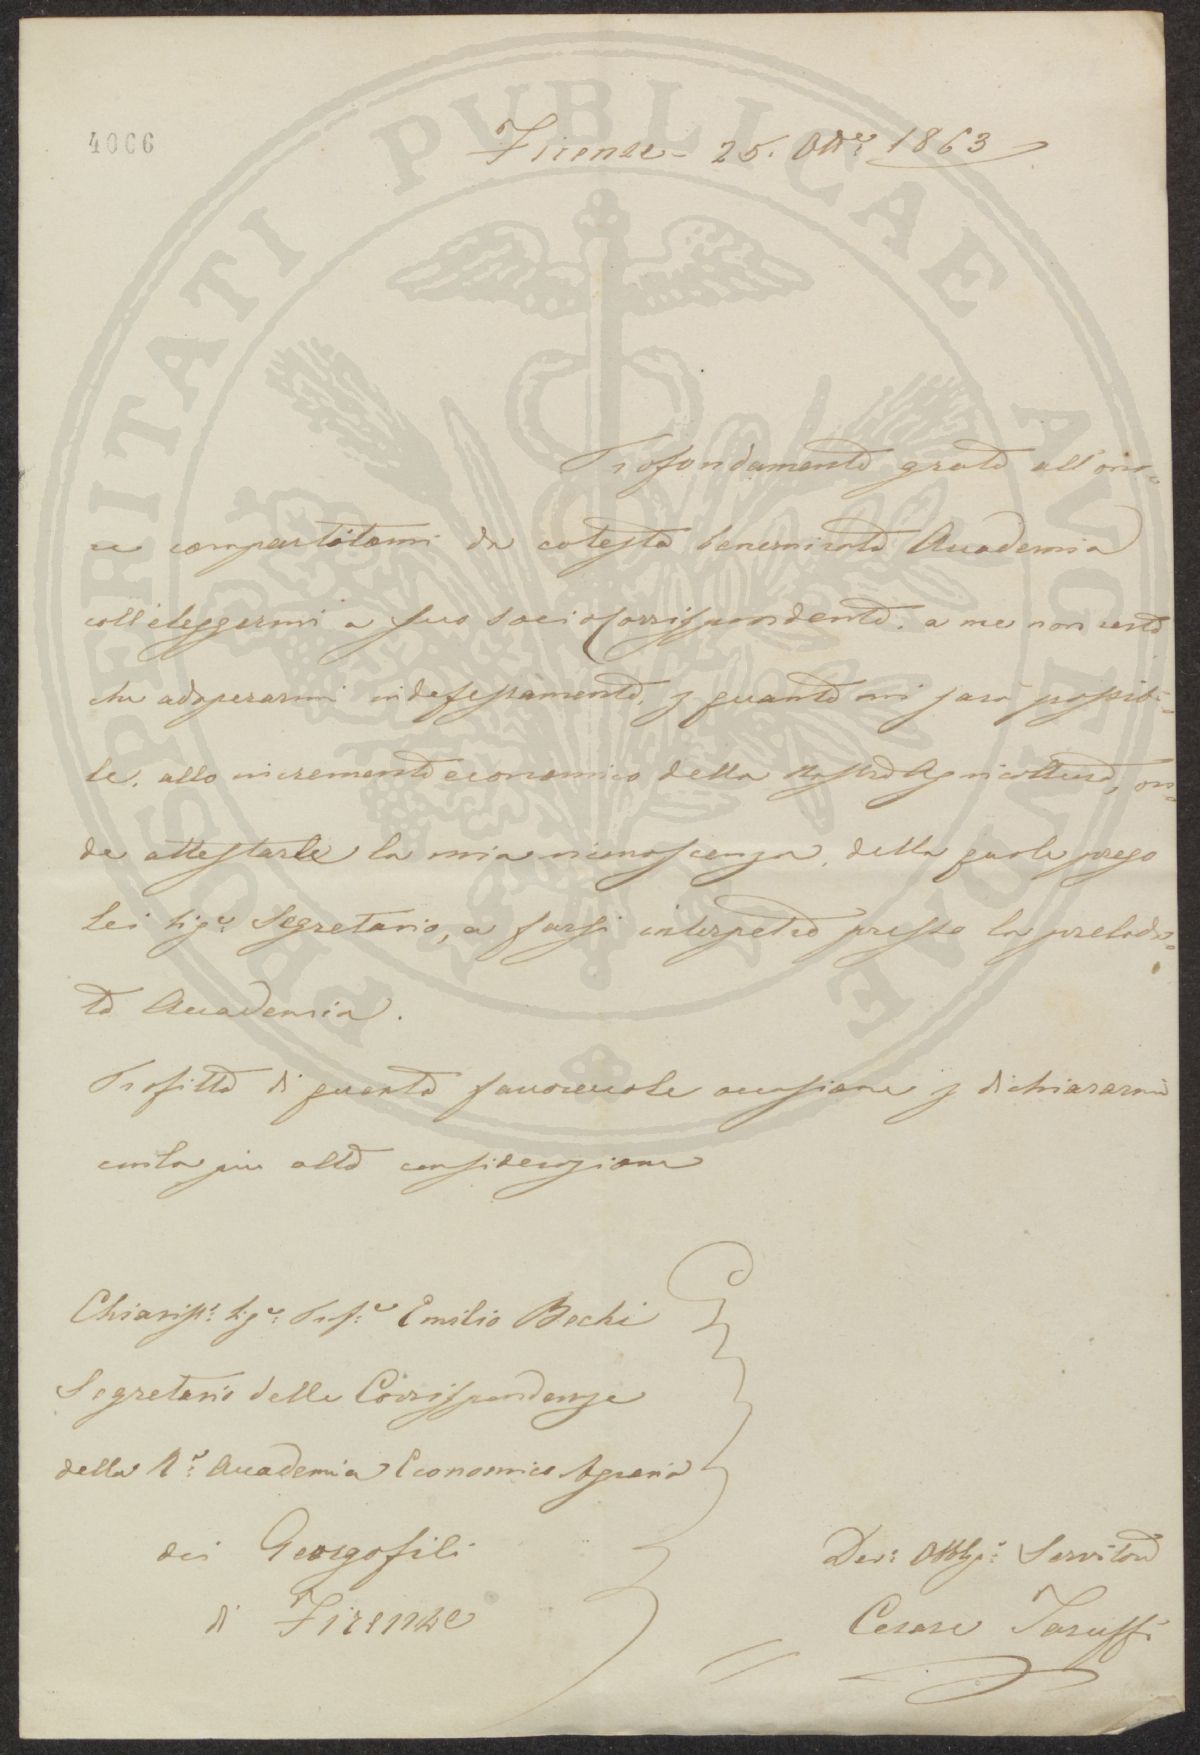 4006
Firenze - 25. Ott.e 1863
Profondamente grato all'ono-
re compartitomi da cotesta benemerita Accademia
coll'eleggermi a suo socio Corrispondente, a me non resta
che adoperarmi indefessamente, p quanto mi sarà possibi-
le, allo incremento economico della nostra Agricoltura, on-
de attestarle la mia riconoscenza, della quale prego
Lei Sig.e Segretario, a farsi interpetre presso la preloda-
ta Accademia.
Profitto di questa favorevole occasione p dichiararmi
con la più alta considerazione
Chiariss.o Sig.e Prof.e Emilio Bechi
Segretario delle Corrispondenze
della R.e Accademia Economico Agraria
dei Georgofili
di Firenze
Dev.o Obblg.o Servitore
Cesare Taruffi
PROSPERITATI PVBLICAE AVGENDAE